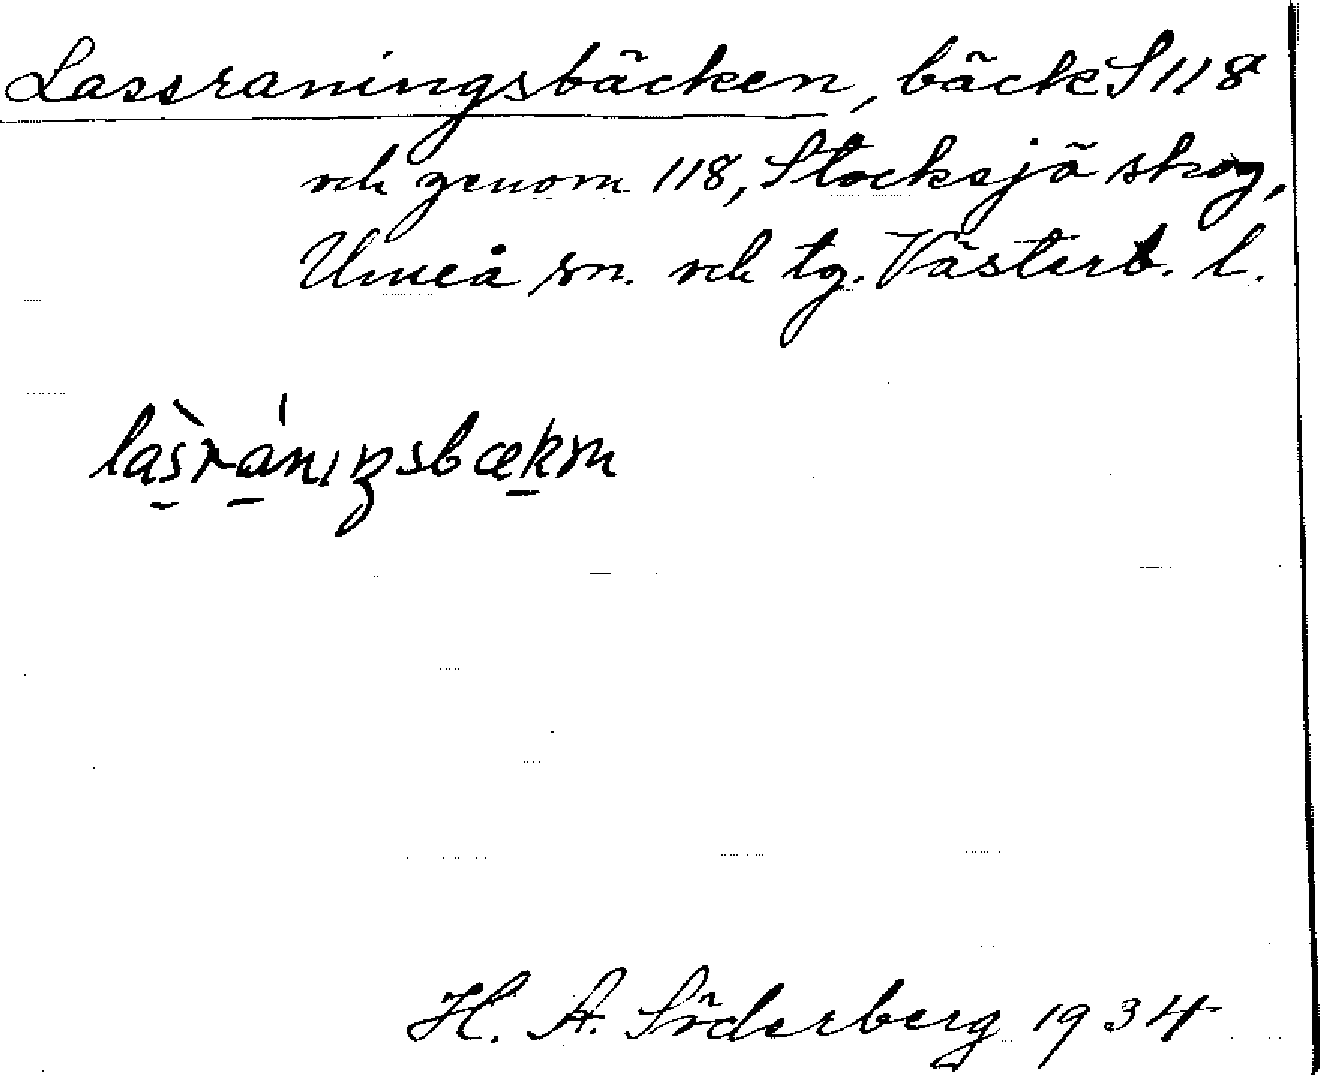 Lassraningsbäcken, bäck S 118
och genom 118, Stocksjö skog,
Umeå sn. och tg. Västerb. l.
làsránıŋsbækɪn
H. A. Söderberg 1934